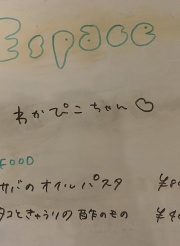 Espace
わかぴこちゃん♡
FOOD
サバのオイルパスタ ¥8
タコときゅうりの酢のもの ¥